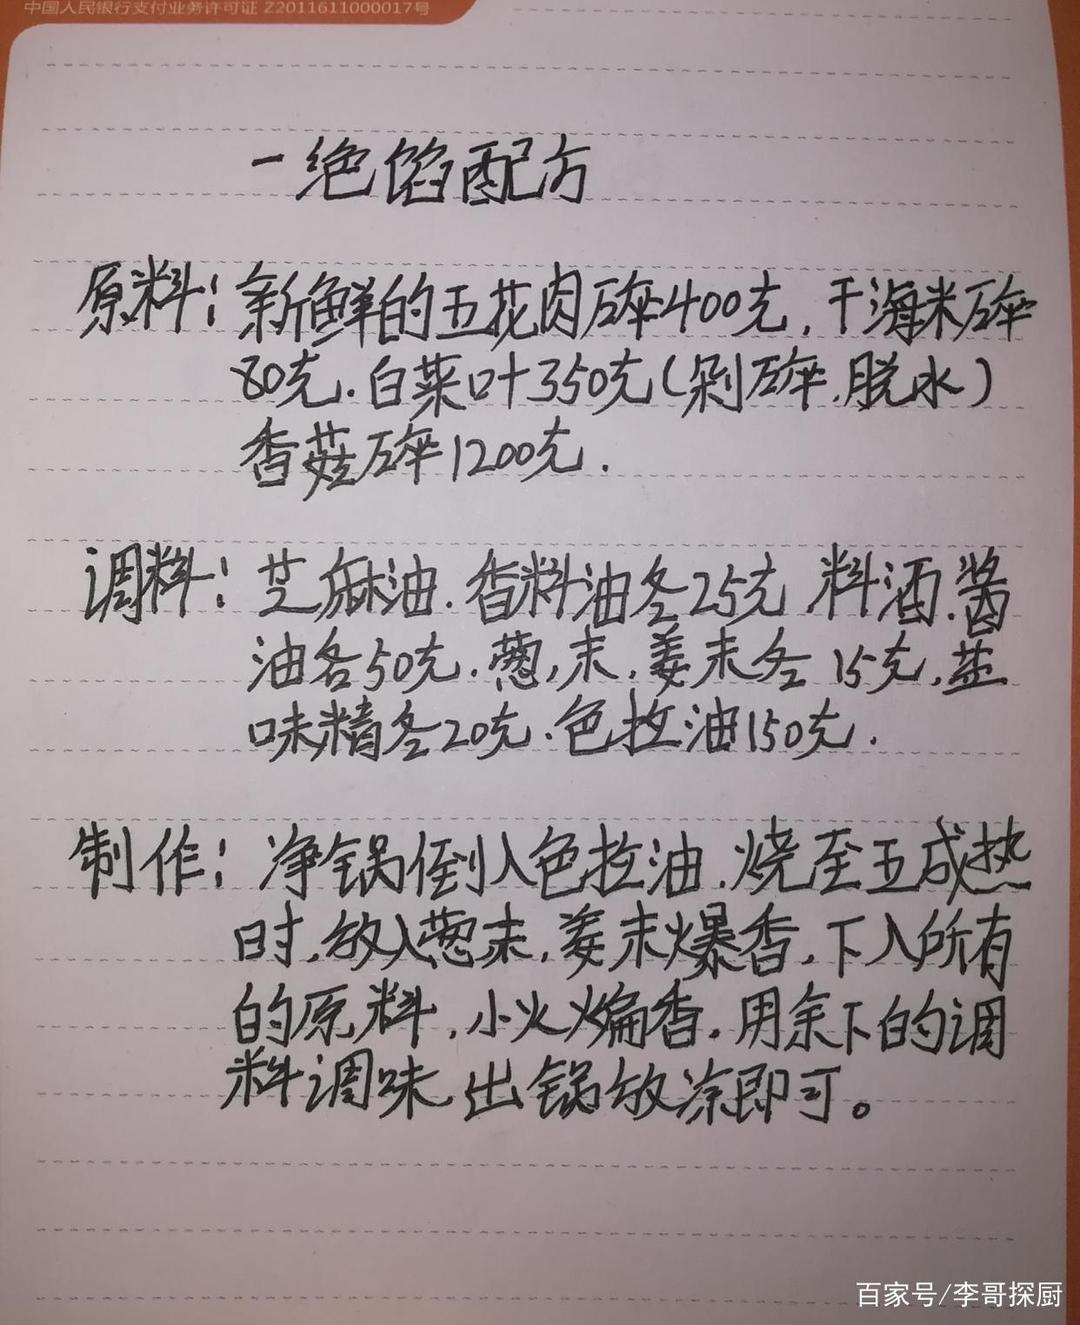 中国人民银行支付业务许可证 Z2011611000017号
一绝馅配方
原料：新鲜的五花肉碎400克，干海米碎
80克.白菜叶350克(剁碎.脱水)
香菇碎1200克.
调料：芝麻油.香料油各25克.料酒.酱
油各50克.葱,末.姜末各15克,盐
味精各20克.色拉油150克.
制作：净锅倒入色拉油.烧至五成热
时,放入葱末,姜末爆香.下入所有
的原料.小火煸香.用余下的调
料调味 出锅放凉即可。
百家号/李哥探厨